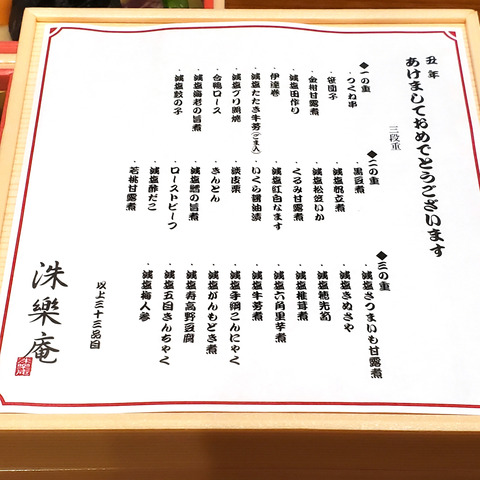 丑年
あけましておめでとうございます
三段重
◆一の重
・つくね串
・笹団子
・金柑甘露煮
・減塩田作り
・伊達巻
・減塩たたき牛蒡(ごま入)
・減塩ブリ照焼
・合鴨ロース
・減塩海老の旨煮
・減塩数の子
◆二の重
・黒豆煮
・減塩帆立煮
・減塩松笠いか
・くるみ甘露煮
・減塩紅白なます
・いくら醤油漬
・渋皮栗
・きんとん
・減塩鱈の旨煮
・ローストビーフ
・減塩酢だこ
・若桃甘露煮
◆三の重
・減塩さつまいも甘露煮
・減塩きぬさや
・減塩穂先筍
・減塩椎茸煮
・減塩六角里芋煮
・減塩牛蒡煮
・減塩手綱こんにゃく
・減塩がんもどき煮
・減塩寿高野豆腐
・減塩五目きんちゃく
・減塩梅人参
以上三十三品目
洙樂庵